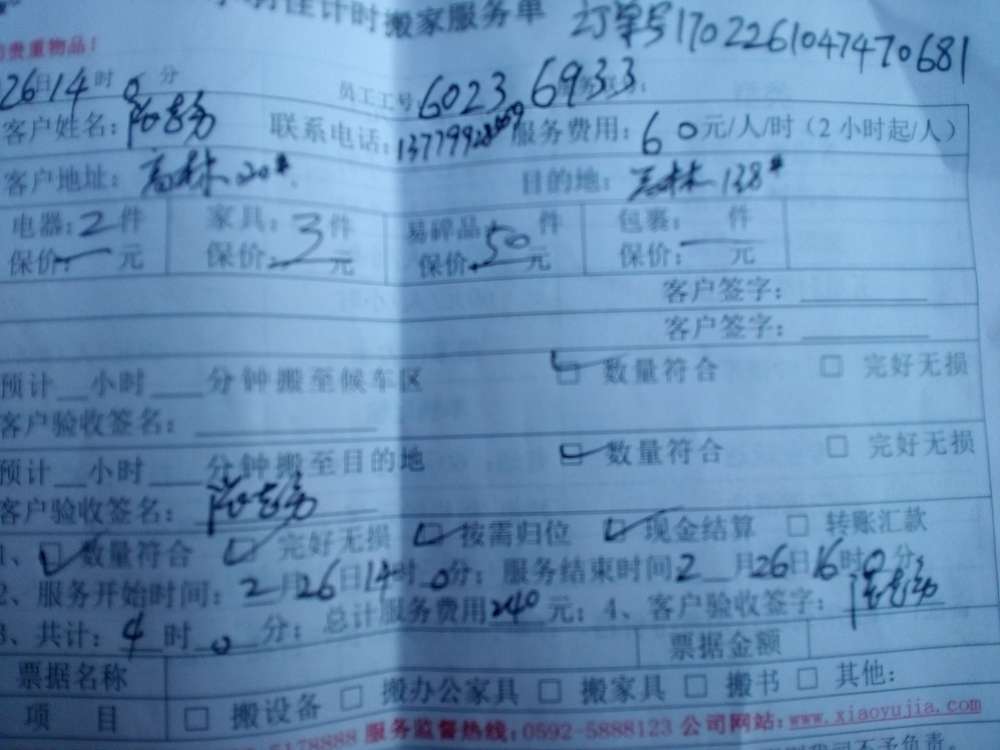 计时搬家服务单 订单号1702261047470681
贵重物品！
26日14时0分 员工工号6023 6933
客户姓名： 联系电话： 服务费用：60元/人/时（2小时起/人）
客户地址：高林20# 目的地：高林138#
电器：2件 家具：3件 易碎品 件 包裹： 件
保价：一元 保价：一元 保价：50元 保价：一元
客户签字：
客户签字：
预计 小时 分钟搬至候车区 数量符合 完好无损
客户验收签名：
预计 小时 分钟搬至目的地 数量符合 完好无损
客户验收签名：
1、 数量符合 完好无损 按需归位 现金结算 转账汇款
2、服务开始时间：2月26日14时0分；服务结束时间2月26日16时0分；
3、共计：4时0分；总计服务费用240元；4、客户验收签字：
票据名称 票据金额
项 目 搬设备 搬办公家具 搬家具 搬书 其他：
5178888 服务监督热线：0592-5888123 公司网站：www.xiaoyujia.com
不予负责